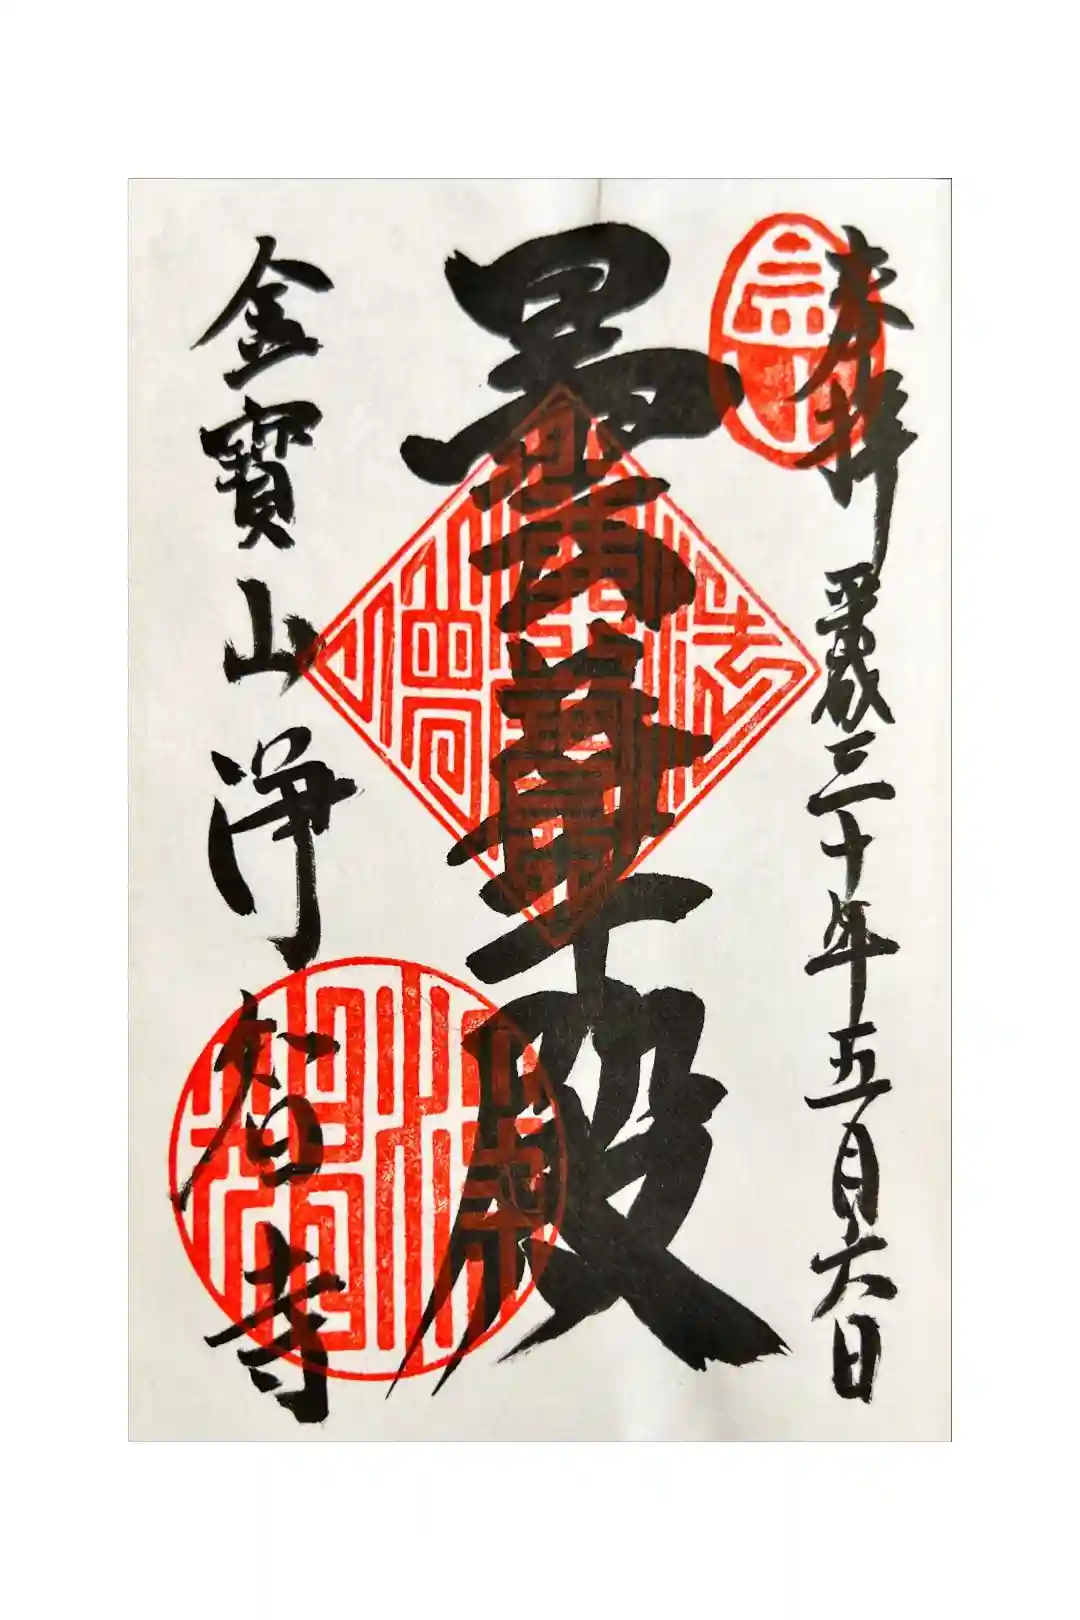 奉拝 平成三十年五月六日
曇華殿
金寶山浄智寺